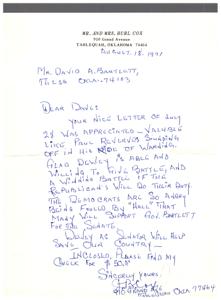 MR. AND MRS. BURL COX
910 Grand Avenue
TAHLEQUAH, OKLAHOMA 74464
AUGUST. 18. 1971
MR. DAVID A. BARTLETT,
TULSA OKLA- 74103
DEAR DAVE:
YOUR NICE LETTER OF JULY
28 WAS APPRECIATED - VALUABLE
LIKE PAUL REVERES SOUNDING
OFF IN HIS RIDE OF WARNING.
GLAD DEWEY IS ABLE AND
WILLING TO GIVE BATTLE, AND
A WINNING BATTLE IF THE
REPUBLICANS WILL DO THEIR DUTY.
THE DEMOCRATS ARE SO ANGRY
BEING FOOLED BY "HALL" THAT
MANY WILL SUPPORT GOV. BARTLETT
FOR SENATE
DEWEY AS SENATOR WILL HELP
SAVE OUR COUNTRY -
INCLOSED, PLEASE FIND MY
CHECK FOR $
SINCERELY YOURS,
910 GRAND AVE
TAHLEQUAH OKLA 74464